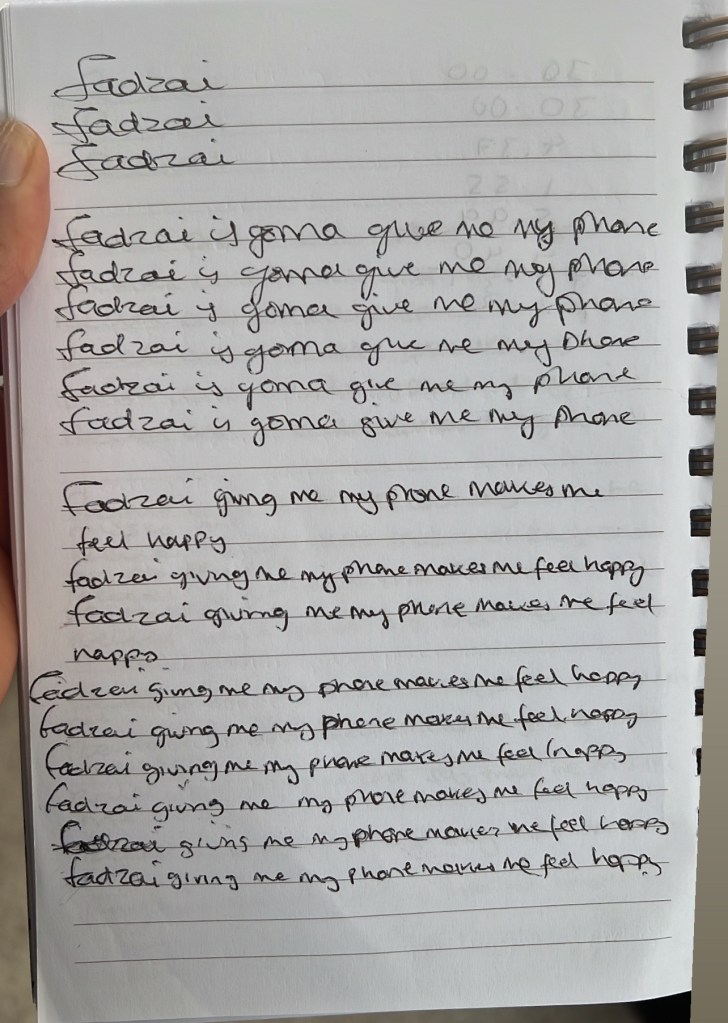 fadzai
fadzai
fadzai
fadzai is gonna give me my phone
fadzai is gonna give me my phone
fadzai is gonna give me my phone
fadzai is gonna give me my phone
fadzai is gonna give me my phone
fadzai is gonna give me my phone
fadzai giving me my phone makes me
feel happy
fadzai giving me my phone makes me feel happy
fadzai giving me my phone makes me feel
happy
fadzai giving me my phone makes me feel happy
fadzai giving me my phone makes me feel happy
fadzai giving me my phone makes me feel happy
fadzai giving me my phone makes me feel happy
fadzai giving me my phone makes me feel happy
fadzai giving me my phone makes me feel happy